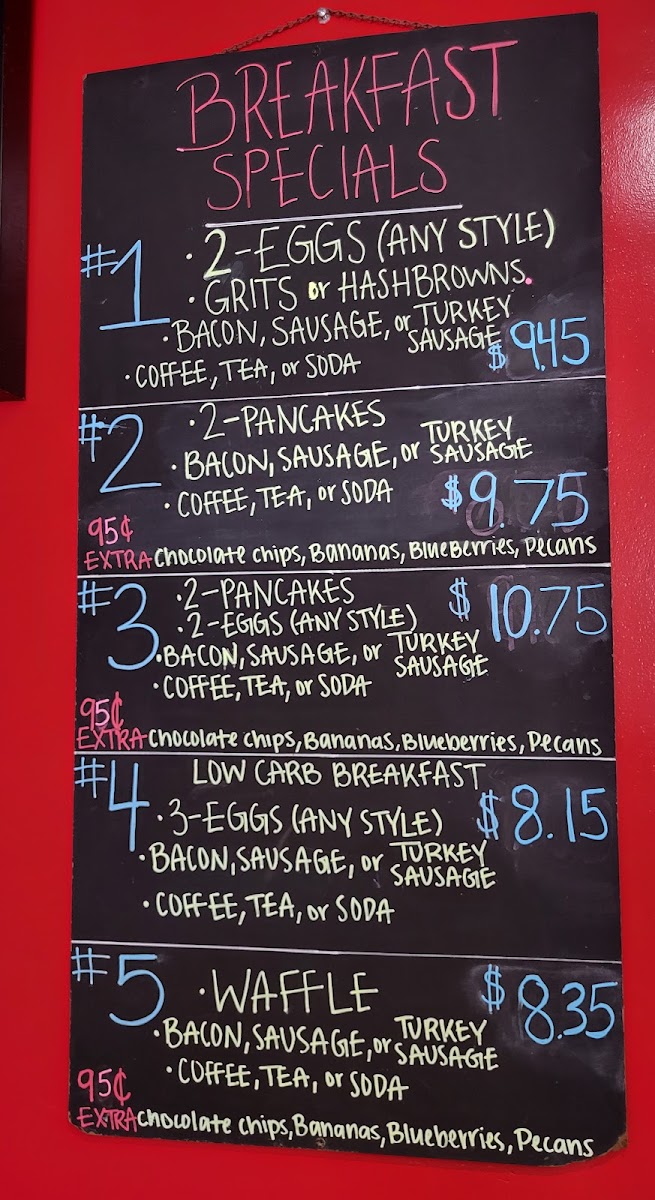 BREAKFAST
SPECIALS
#1
• 2-EGGS (ANY STYLE)
• GRITS or HASHBROWNS.
• BACON, SAUSAGE, or TURKEY SAUSAGE
$ 9.45
• COFFEE, TEA, or SODA
#2
• 2-PANCAKES
• BACON, SAUSAGE, or TURKEY SAUSAGE
• COFFEE, TEA, or SODA
$9.75
95¢
EXTRA Chocolate chips, Bananas, Blueberries, Pecans
#3
• 2-PANCAKES
$ 10.75
• 2-EGGS (ANY STYLE)
• BACON, SAUSAGE, or TURKEY SAUSAGE
• COFFEE, TEA, or SODA
95¢
EXTRA Chocolate chips, Bananas, Blueberries, Pecans
#4
LOW CARB BREAKFAST
• 3-EGGS (ANY STYLE)
$8.15
• BACON, SAUSAGE, or TURKEY SAUSAGE
• COFFEE, TEA, or SODA
#5
• WAFFLE
$8.35
• BACON, SAUSAGE, or TURKEY SAUSAGE
• COFFEE, TEA, or SODA
95¢
EXTRA Chocolate chips, Bananas, Blueberries, Pecans